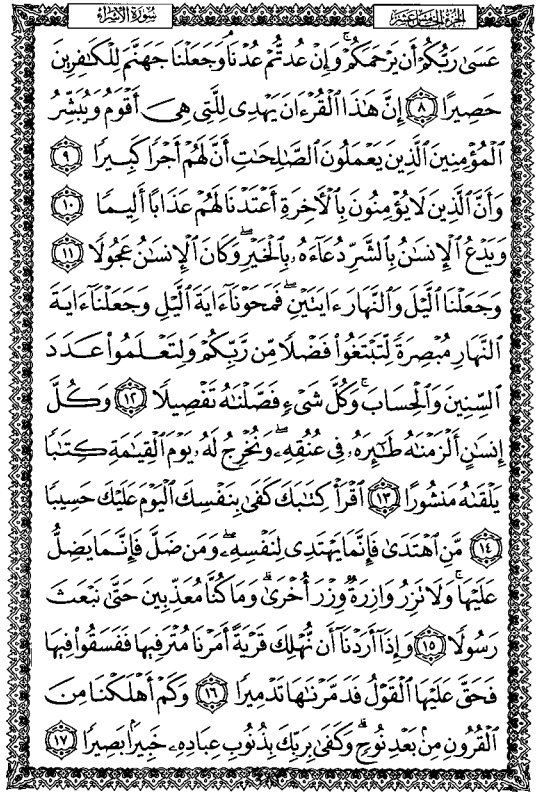 الجزء الخامس عشر
سورة الإسراء
عَسَىٰ رَبُّكُمْ أَن يَرْحَمَكُمْ ۚ وَإِنْ عُدتُّمْ عُدْنَا ۘ وَجَعَلْنَا جَهَنَّمَ لِلْكَافِرِينَ
حَصِيرًا ٨ إِنَّ هَٰذَا الْقُرْءَانَ يَهْدِى لِلَّتِى هِىَ أَقْوَمُ وَيُبَشِّرُ
الْمُؤْمِنِينَ الَّذِينَ يَعْمَلُونَ الصَّالِحَاتِ أَنَّ لَهُمْ أَجْرًا كَبِيرًا ٩
وَأَنَّ الَّذِينَ لَا يُؤْمِنُونَ بِالْآخِرَةِ أَعْتَدْنَا لَهُمْ عَذَابًا أَلِيمًا ١٠
وَيَدْعُ الْإِنسَانُ بِالشَّرِّ دُعَاءَهُ بِالْخَيْرِ ۖ وَكَانَ الْإِنسَانُ عَجُولًا ١١
وَجَعَلْنَا الَّيْلَ وَالنَّهَارَ ءَايَتَيْنِ ۖ فَمَحَوْنَا ءَايَةَ الَّيْلِ وَجَعَلْنَا ءَايَةَ
النَّهَارِ مُبْصِرَةً لِّتَبْتَغُوا فَضْلًا مِّن رَّبِّكُمْ وَلِتَعْلَمُوا عَدَدَ
السِّنِينَ وَالْحِسَابَ ۚ وَكُلَّ شَىْءٍ فَصَّلْنَاهُ تَفْصِيلًا ١٢ وَكُلَّ
إِنسَانٍ أَلْزَمْنَاهُ طَائِرَهُ فِى عُنُقِهِ ۖ وَنُخْرِجُ لَهُ يَوْمَ الْقِيَامَةِ كِتَابًا
يَلْقَاهُ مَنشُورًا ١٣ اقْرَأْ كِتَابَكَ كَفَىٰ بِنَفْسِكَ الْيَوْمَ عَلَيْكَ حَسِيبًا
١٤ مَّنِ اهْتَدَىٰ فَإِنَّمَا يَهْتَدِى لِنَفْسِهِ ۖ وَمَن ضَلَّ فَإِنَّمَا يَضِلُّ
عَلَيْهَا ۚ وَلَا تَزِرُ وَازِرَةٌ وِزْرَ أُخْرَىٰ ۗ وَمَا كُنَّا مُعَذِّبِينَ حَتَّىٰ نَبْعَثَ
رَسُولًا ١٥ وَإِذَا أَرَدْنَا أَن نُّهْلِكَ قَرْيَةً أَمَرْنَا مُتْرَفِيهَا فَفَسَقُوا فِيهَا
فَحَقَّ عَلَيْهَا الْقَوْلُ فَدَمَّرْنَاهَا تَدْمِيرًا ١٦ وَكَمْ أَهْلَكْنَا مِنَ
الْقُرُونِ مِن بَعْدِ نُوحٍ ۗ وَكَفَىٰ بِرَبِّكَ بِذُنُوبِ عِبَادِهِ خَبِيرًا بَصِيرًا ١٧